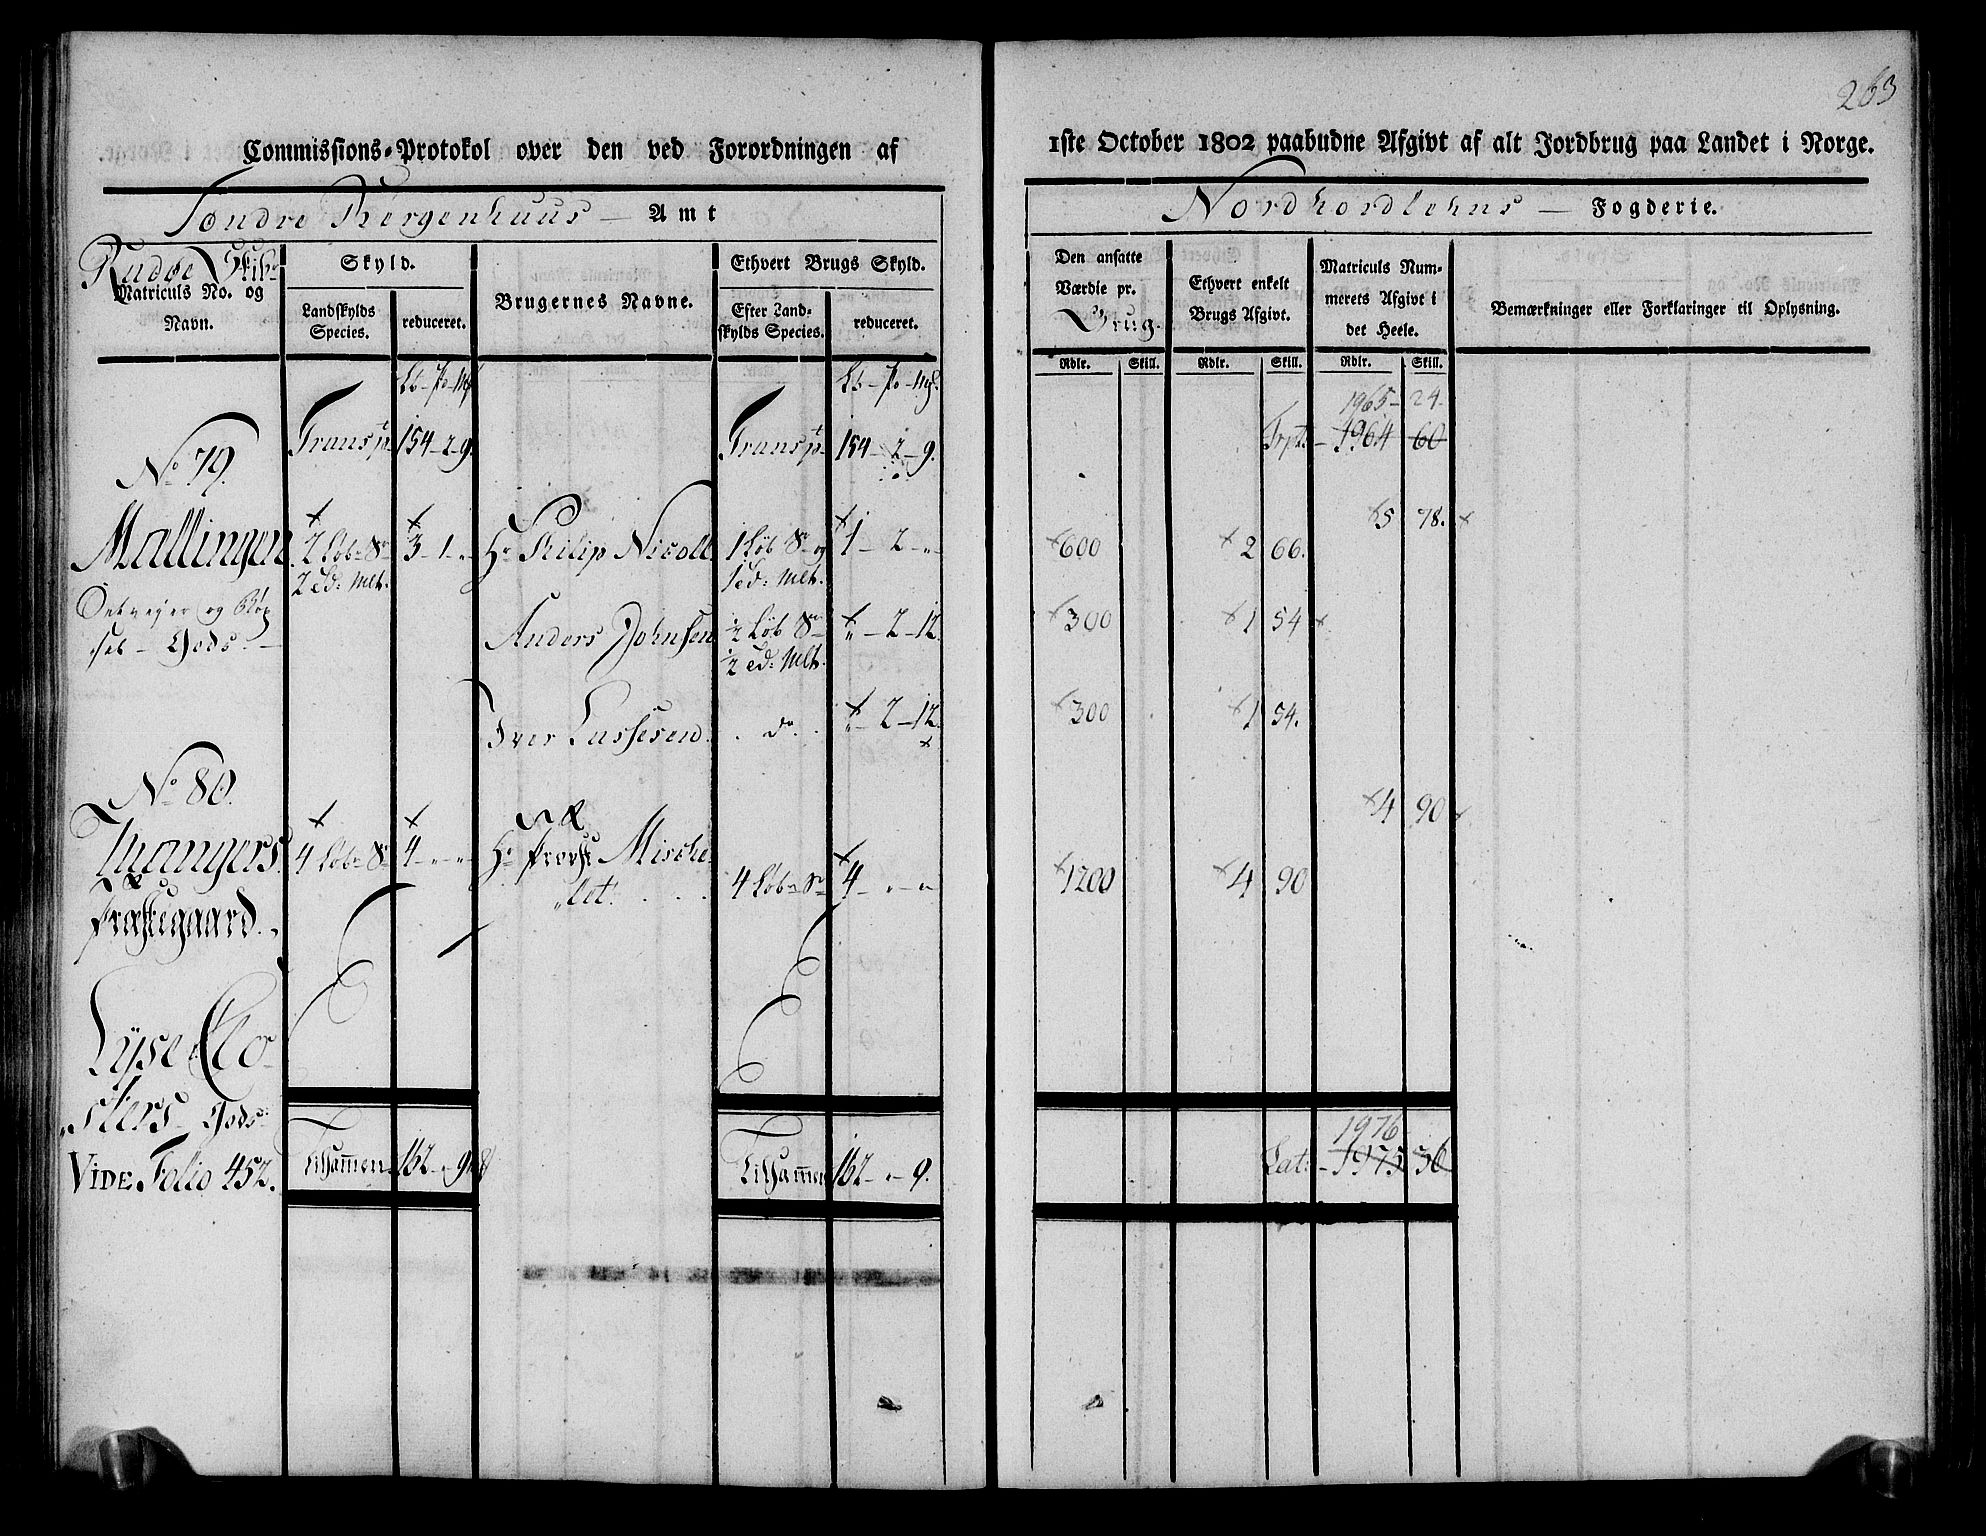 263
Commissions-Protokol over den ved Forordningen af 1ste October 1802 paabudne Afgivt af alt Jordbrug paa Landet i Norge.
Søndre Bergenhuus — Amt
Nordhordlehns — Fogderie.
Matriculs No. og Navn.
Skyld.
Landskylds Species.
reduceret.
Brugernes Navne.
Ethvert Brugs Skyld.
Efter Landskylds Species.
reduceret.
Den ansatte Værdie pr. Brug.
Ethvert enkelt Brugs Afgivt.
Matriculs Nummerets Afgivt i det Heele.
Bemærkninger eller Forklaringer til Oplysning.
Rdlr. Skill. Rdlr. Skill. Rdlr. Skill.
1965 - 24.
Transpt 154 - 2 - 9. Transpt 154 - 2 - 9. Trpt - 1964 60
No 79.
5 78.
Mallingen 2 Løb Sr 3 - 1 - „ Hr Philip Nicoll 1 Løb Sr og 1 - 2 - „ 600 2 66.
2 Ed: Mlt. 1 ed: Mlt.
og
Gods.
Anders Johnsen ½ Løb Sr „ - 2 - 12. 300 1 54
½ ed: Mlt.
Iver Lassesen do „ - 2 - 12. 300 1 54.
No 80.
4 90
4 Løb Sr 4 - „ - „ Hr Provst Michelet. 4 Løb Sr 4 - „ - „ 1200 4 90
Præstegaard.
Lyse Closters Gods:
Vide Folio 452.
Tilsammen 162 - „ 9 Tilsammen 162 - „ - 9. Lat: - 1975 36
1976